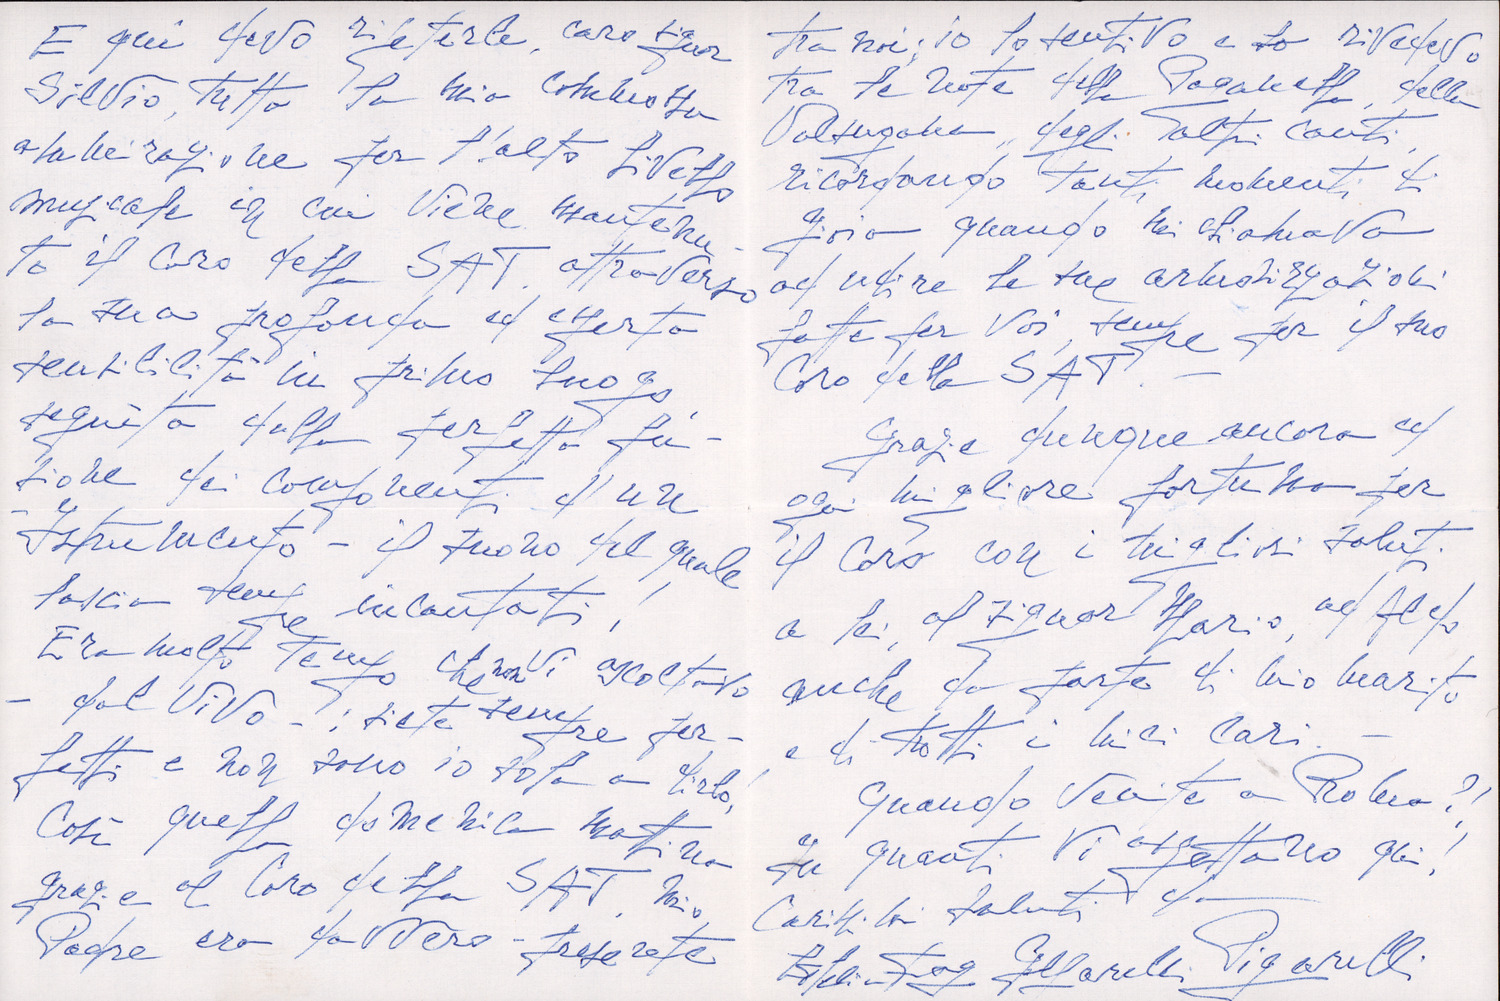 E qui devo ripeterle, caro signor
Silvio, tutta la mia commossa
ammirazione per l'alto livello
musicale in cui viene mantenu-
to il Coro della SAT. attraverso
la sua profonda ed esperta
sensibilità in primo luogo,
seguita dalla perfetta fu-
sione dei componenti d'un
- Istrumento - il suono del quale
lascia sempre incantati!
Era molto tempo che non Vi ascoltavo
- dal vivo - ; siete sempre per-
fetti e non sono io sola a dirlo!
Così quella domenica mattina
grazie al Coro della SAT. mio
Padre era davvero - presente
tra noi; io lo sentivo e lo rivedevo
tra le note della Paganella, della
Valsugana, degli altri canti,
ricordando tanti momenti di
gioia quando mi chiamava
ad udire le sue armonizzazioni
fatte per Voi, sempre per il suo
Coro della SAT. -
Grazie dunque ancora ed
ogni migliore fortuna per
il Coro con i migliori saluti
a lei, al signor Mario, ad Aldo
anche da parte di mio marito
e di tutti i miei cari. -
Quando venite a Roma?!
In quanti Vi aspettano qui!
Carissimi saluti da
Pigarelli